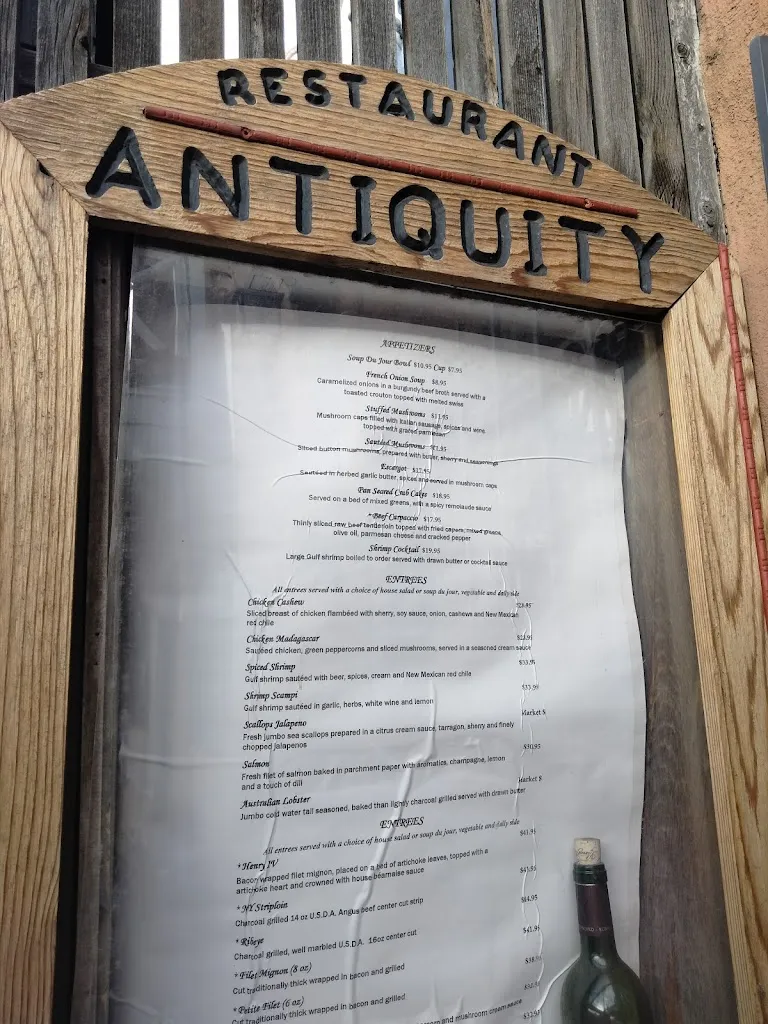 RESTAURANT
ANTIQUITY
APPETIZERS
Soup Du Jour Bowl $10.95 Cup $7.95
French Onion Soup $8.95
Caramelized onions in a burgundy beef broth served with a
toasted crouton topped with melted swiss
Stuffed Mushrooms $11.95
Mushroom caps filled with Italian sausage, spices and wine,
topped with grated parmesan
Sautéed Mushrooms
Sliced button mushrooms, prepared with butter, sherry and seasonings
Escargot
Sautéed in herbed garlic butter, spices and served in mushroom caps
Pan Seared Crab Cakes $18.95
Served on a bed of mixed greens, with a spicy remolaude sauce
*Beef Carpaccio $17.95
Thinly sliced raw beef tenderloin topped with fried capers, mixed greens,
olive oil, parmesan cheese and cracked pepper
Shrimp Cocktail $19.95
Large Gulf shrimp boiled to order served with drawn butter or cocktail sauce
ENTREES
All entrees served with a choice of house salad or soup du jour, vegetable and daily side
Chicken Cashew
Sliced breast of chicken flambéed with sherry, soy sauce, onion, cashews and New Mexican
red chile
Chicken Madagascar
Sautéed chicken, green peppercorns and sliced mushrooms, served in a seasoned cream sauce
Spiced Shrimp $33.95
Gulf shrimp sautéed with beer, spices, cream and New Mexican red chile
Shrimp Scampi $33.95
Gulf shrimp sautéed in garlic, herbs, white wine and lemon
Scallops Jalapeno Market $
Fresh jumbo sea scallops prepared in a citrus cream sauce, tarragon, sherry and finely
chopped jalapenos
Salmon $30.95
Fresh filet of salmon baked in parchment paper with aromatics, champagne, lemon
and a touch of dill
Australian Lobster Market $
Jumbo cold water tail seasoned, baked than lightly charcoal grilled served with drawn butter
ENTREES
All entrees served with a choice of house salad or soup du jour, vegetable and daily side
*Henry IV $41.95
Bacon wrapped filet mignon, placed on a bed of artichoke leaves, topped with a
artichoke heart and crowned with house béarnaise sauce
*NY Striploin
Charcoal grilled 14 oz U.S.D.A. Angus beef center cut strip
*Ribeye $44.95
Charcoal grilled, well marbled U.S.D.A. 16oz center cut
*Filet Mignon (8 oz) $41.95
Cut traditionally thick wrapped in bacon and grilled
*Petite Filet (6 oz)
Cut traditionally thick wrapped in bacon and grilled
and mushroom cream sauce